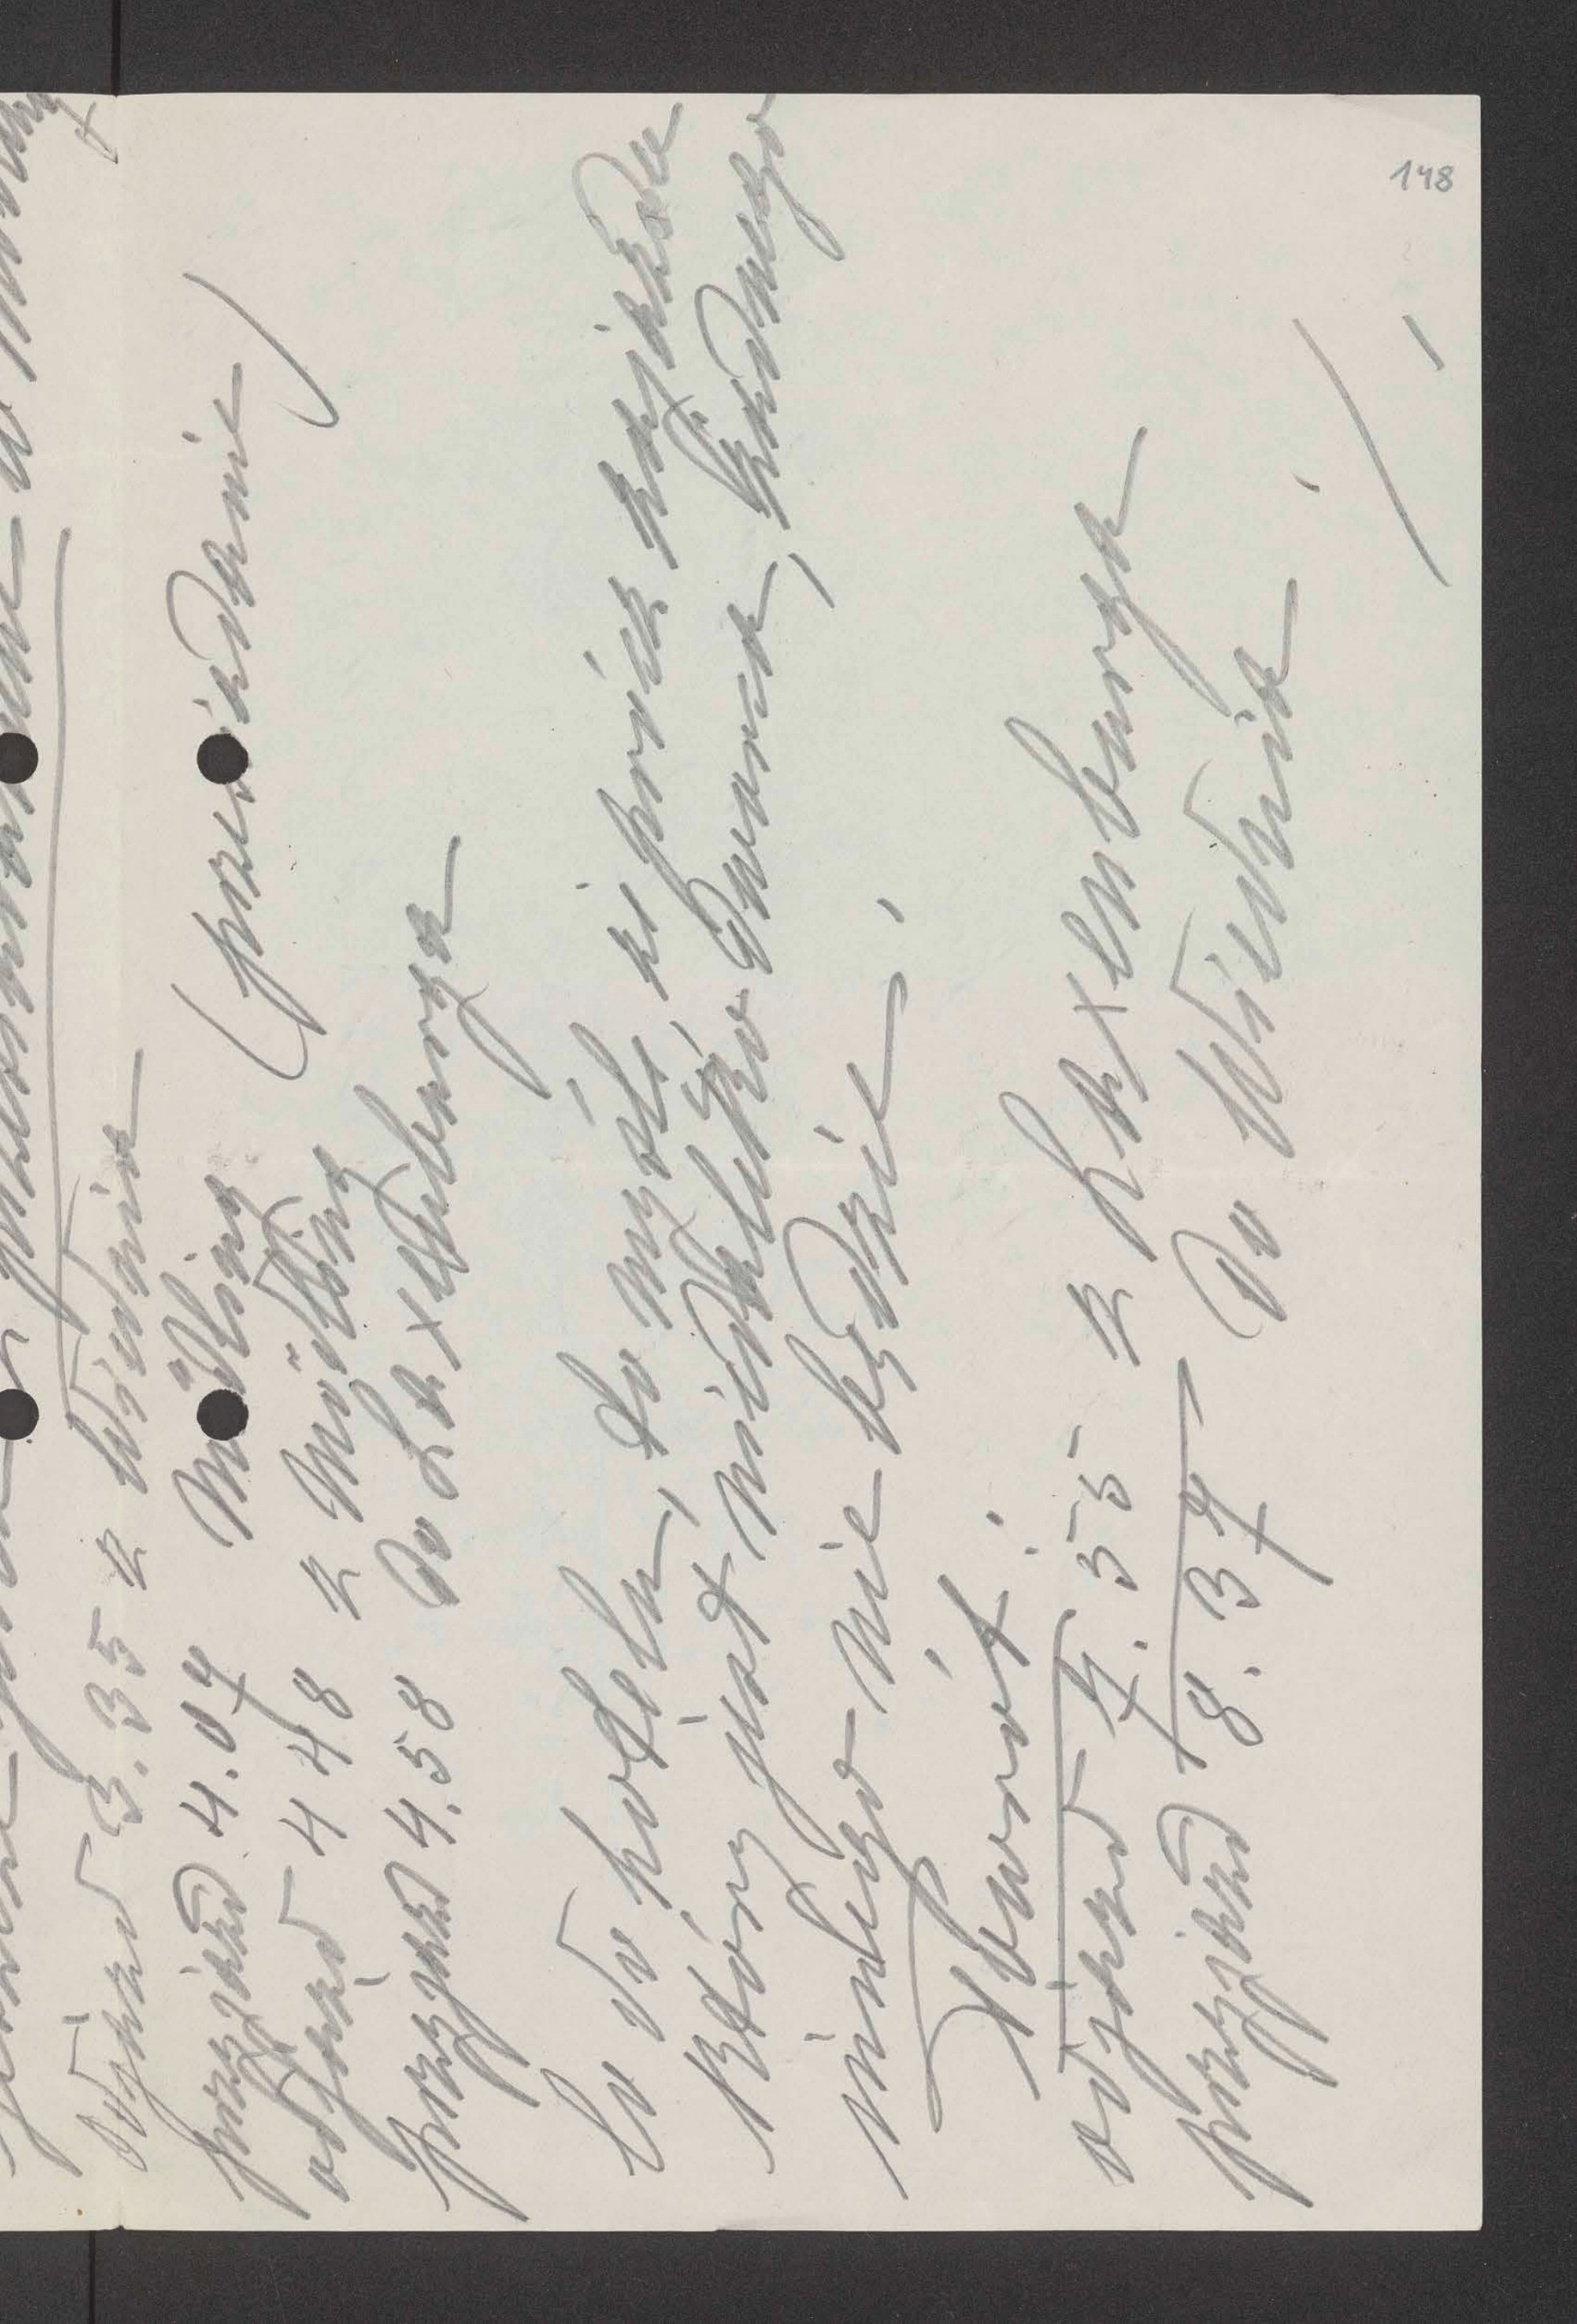 odjazd 3.35 z Wiednia
przyjazd 4.07 Mödling (przesiadanie)
odjazd 4 48 z Mödling
przyjazd 4.58 do Laxenburga
Co do hotelu, to myślę, że prócz
który jest niedaleko dworca, żadnego
innego nie będzie!
Powrót:
odjazd 7.55 z Laxenburga
przyjazd 8.37 do Wiednia
148